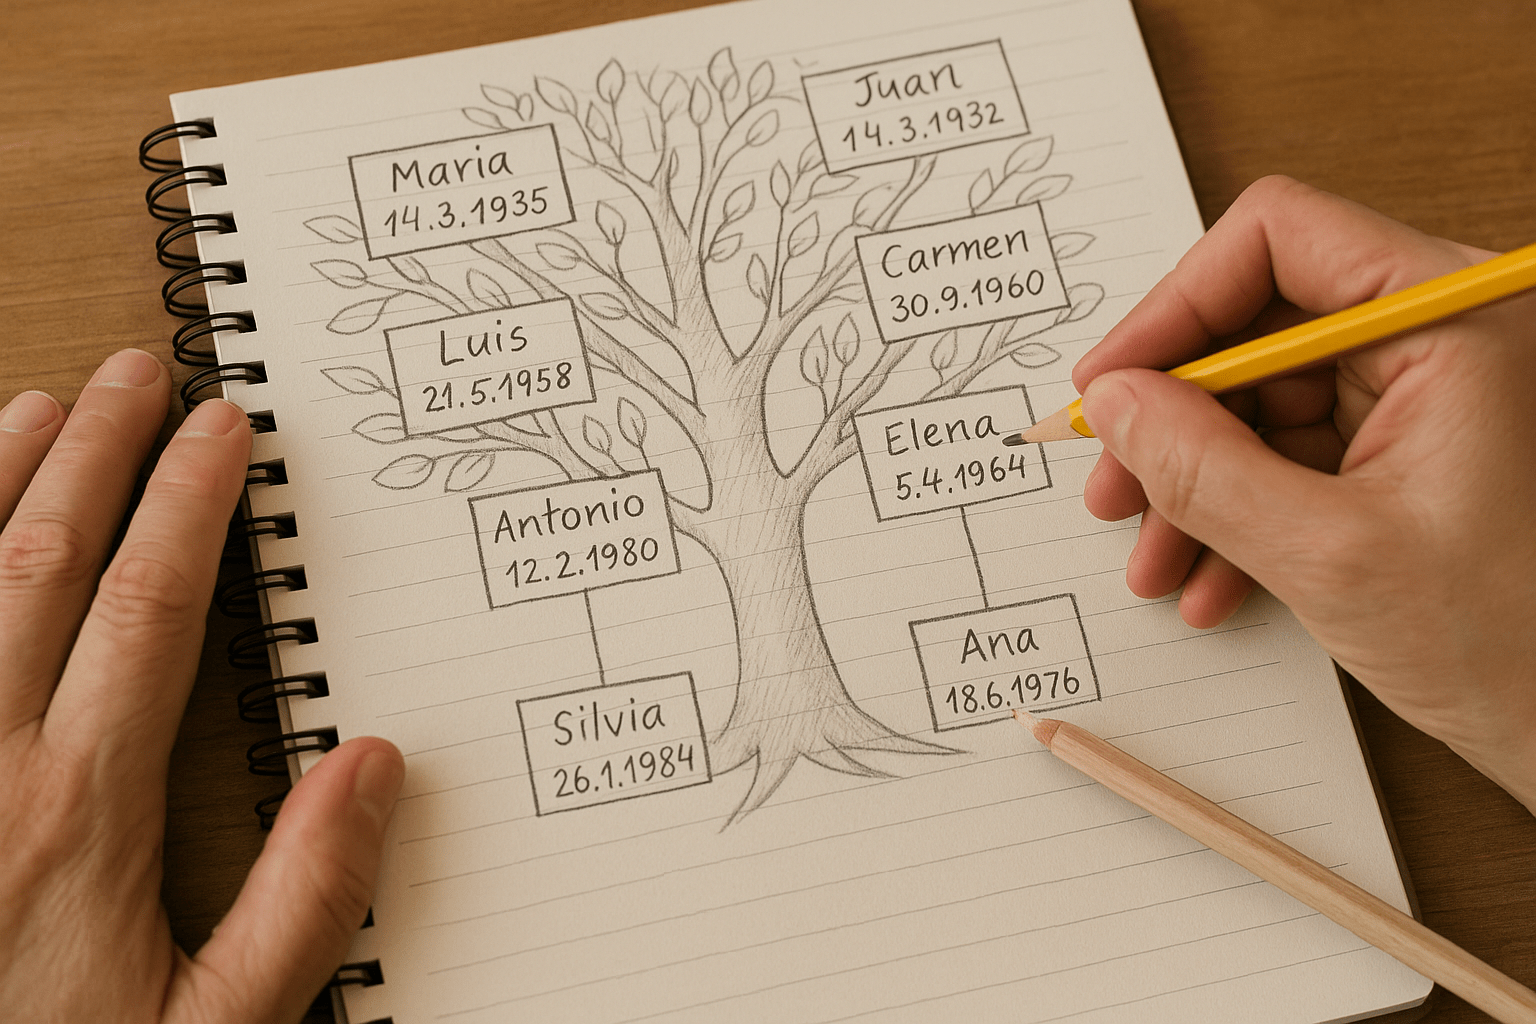 Maria
14.3.1935
Juan
14.3.1932
Luis
21.5.1958
Carmen
30.9.1960
Antonio
12.2.1980
Elena
5.4.1964
Silvia
26.1.1984
Ana
18.6.1976